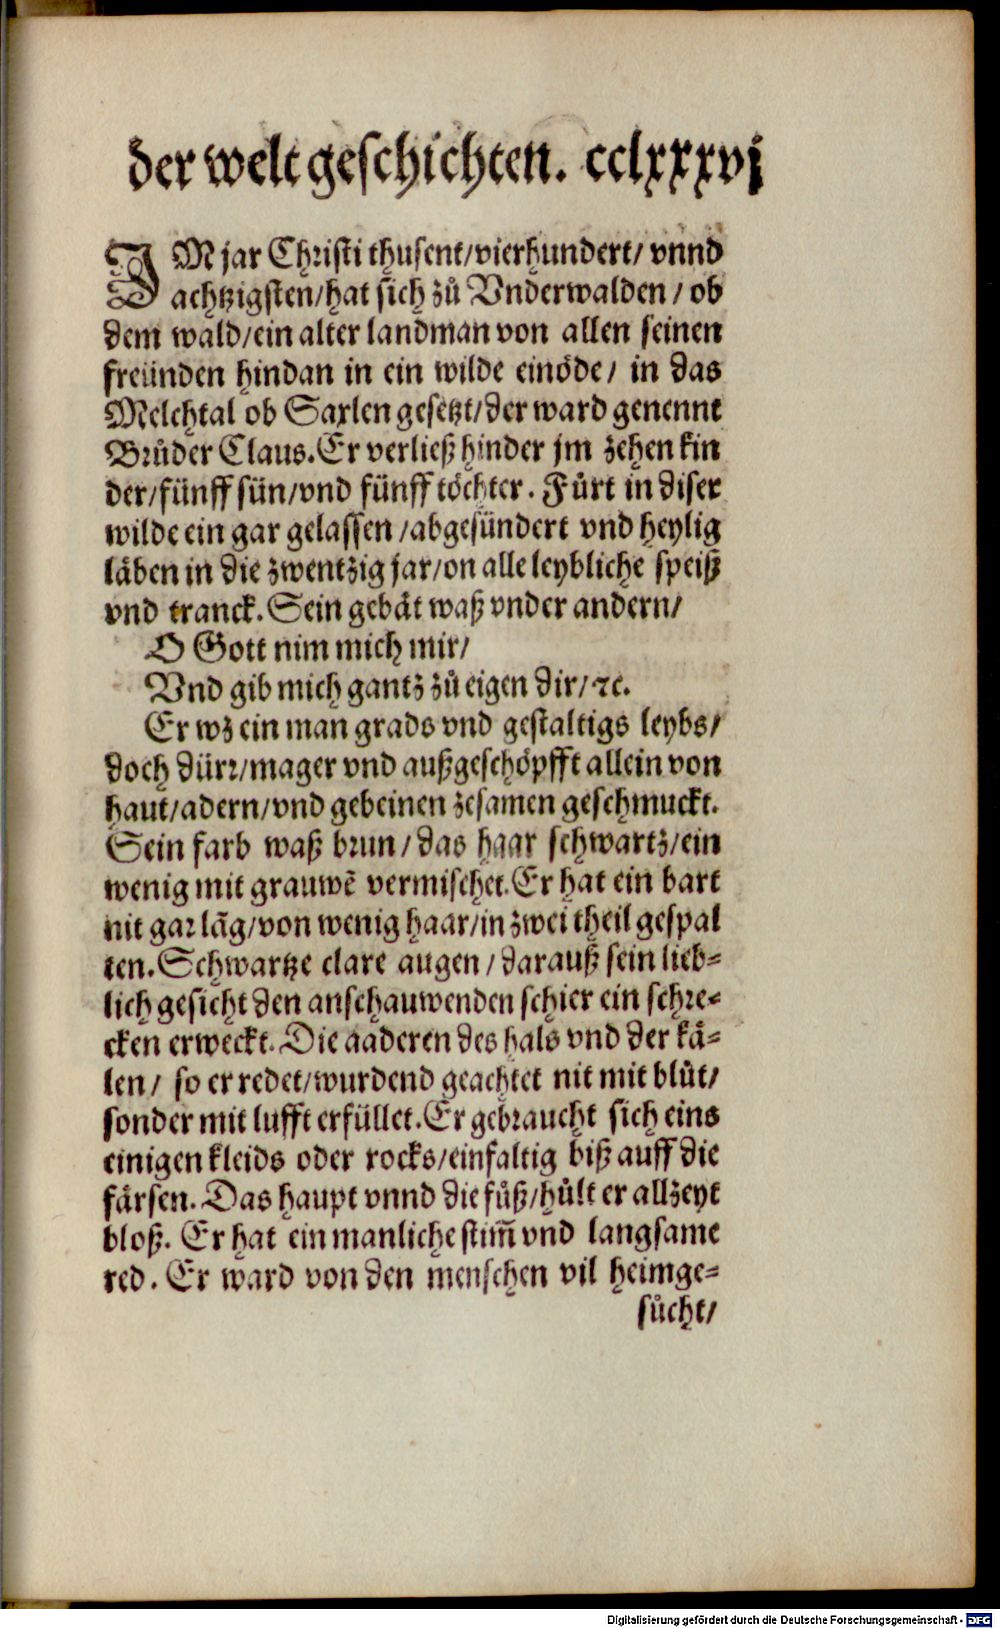 der welt geschichten. cclxxxvj
IM jar Christi thusent/vierhundert/ vnnd
achtzigsten/hat sich zů Vnderwalden / ob
dem wald/ein alter landman von allen seinen
freünden hindan in ein wilde einöde/ in das
Melchtal ob Saxlen gesetzt/der ward genennt
Brůder Claus. Er verließ hinder jm zehen kin
der/fünff sün/vnd fünff töchter. Fůrt in diser
wilde ein gar gelassen /abgesündert vnd heylig
läben in die zwentzig jar/on alle leybliche speiß
vnd tranck. Sein gebät waß vnder andern/
O Gott nim mich mir/
Vnd gib mich gantz zů eigen dir/ꝛc.
Er wz ein man grads vnd gestaltigs leybs/
doch dürꝛ/mager vnd außgeschöpfft allein von
haut/adern/vnd gebeinen zesamen geschmuckt.
Sein farb waß brun/das haar schwartz/ein
wenig mit grauwē vermischet. Er hat ein bart
nit gar lāg/von wenig haar/in zwei theil gespal
ten. Schwartze clare augen/darauß sein lieb⸗
lich gesicht den anschauwenden schier ein schre⸗
cken erweckt. Die aaderen des hals vnd der kä⸗
len/ so er redet/wurdend geachtet nit mit blůt/
sonder mit lufft erfüllet. Er gebraucht sich eins
einigen kleids oder rocks/einfaltig biß auff die
färsen. Das haupt vnnd die fůß/hůlt er allzeyt
bloß. Er hat ein manliche stim̄ vnd langsame
red. Er ward von den menschen vil heimge⸗
sůcht/
Digitalisierung gefördert durch die Deutsche Forschungsgemeinschaft - DFG